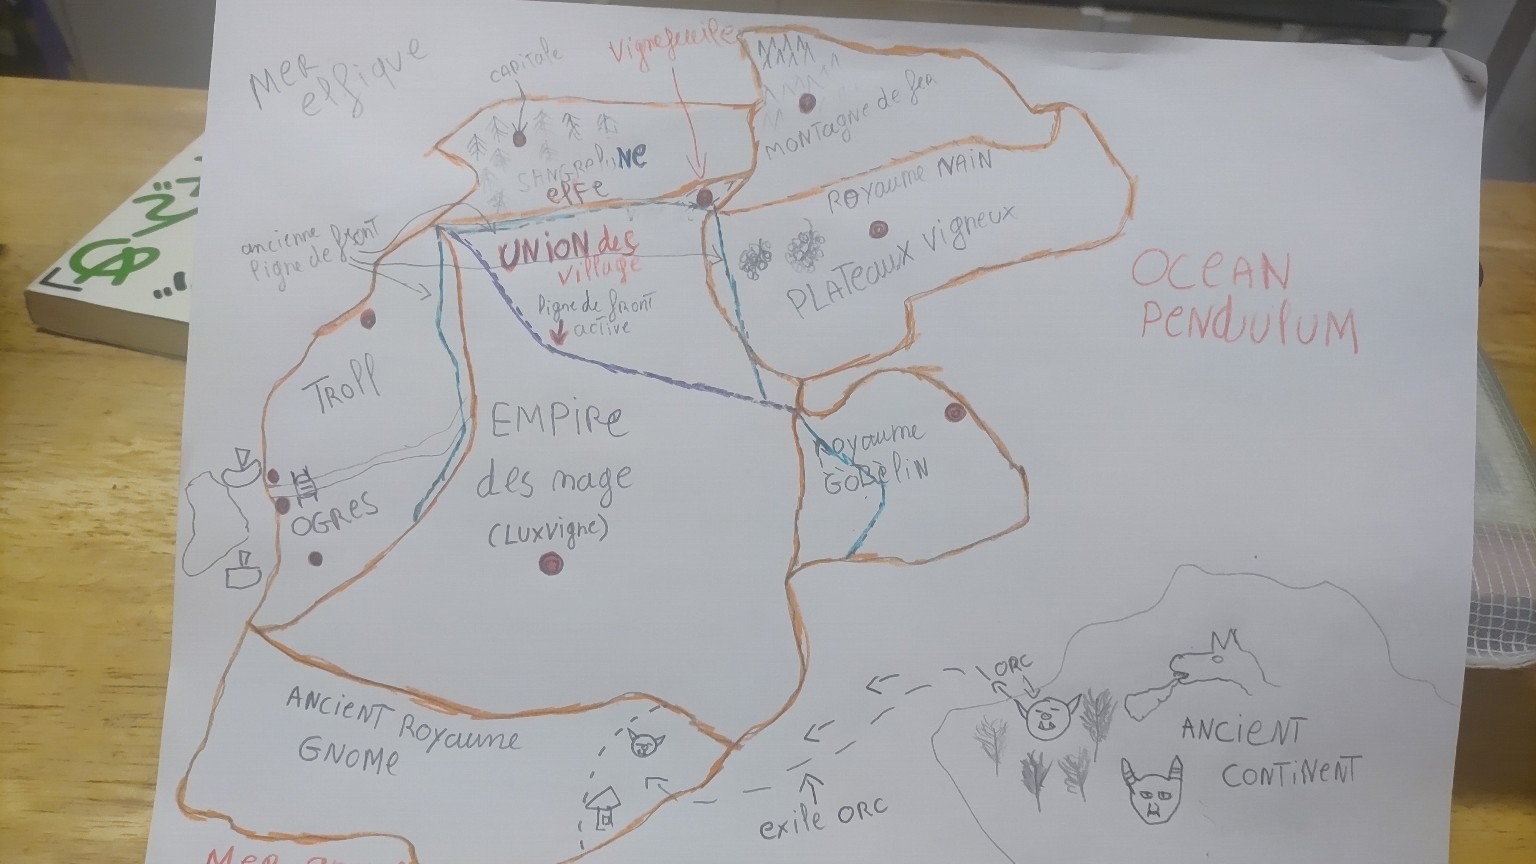 MER
elfique
capitale
Vignefeuille
MONTagne de fer
SANGRELUNE
elfe
ROYaume NAIN
PLATeaux vigneux
ancienne front
ligne de front
UNION des
village
ligne de front
active
OCEAN
PENDULUM
Troll
EMPIRe
des mage
(LUXVigne)
royaume
GOBELIN
OGRES
ANCIENT ROYaume
GNOME
ORC
ANCIENT
CONTINENT
exile ORC